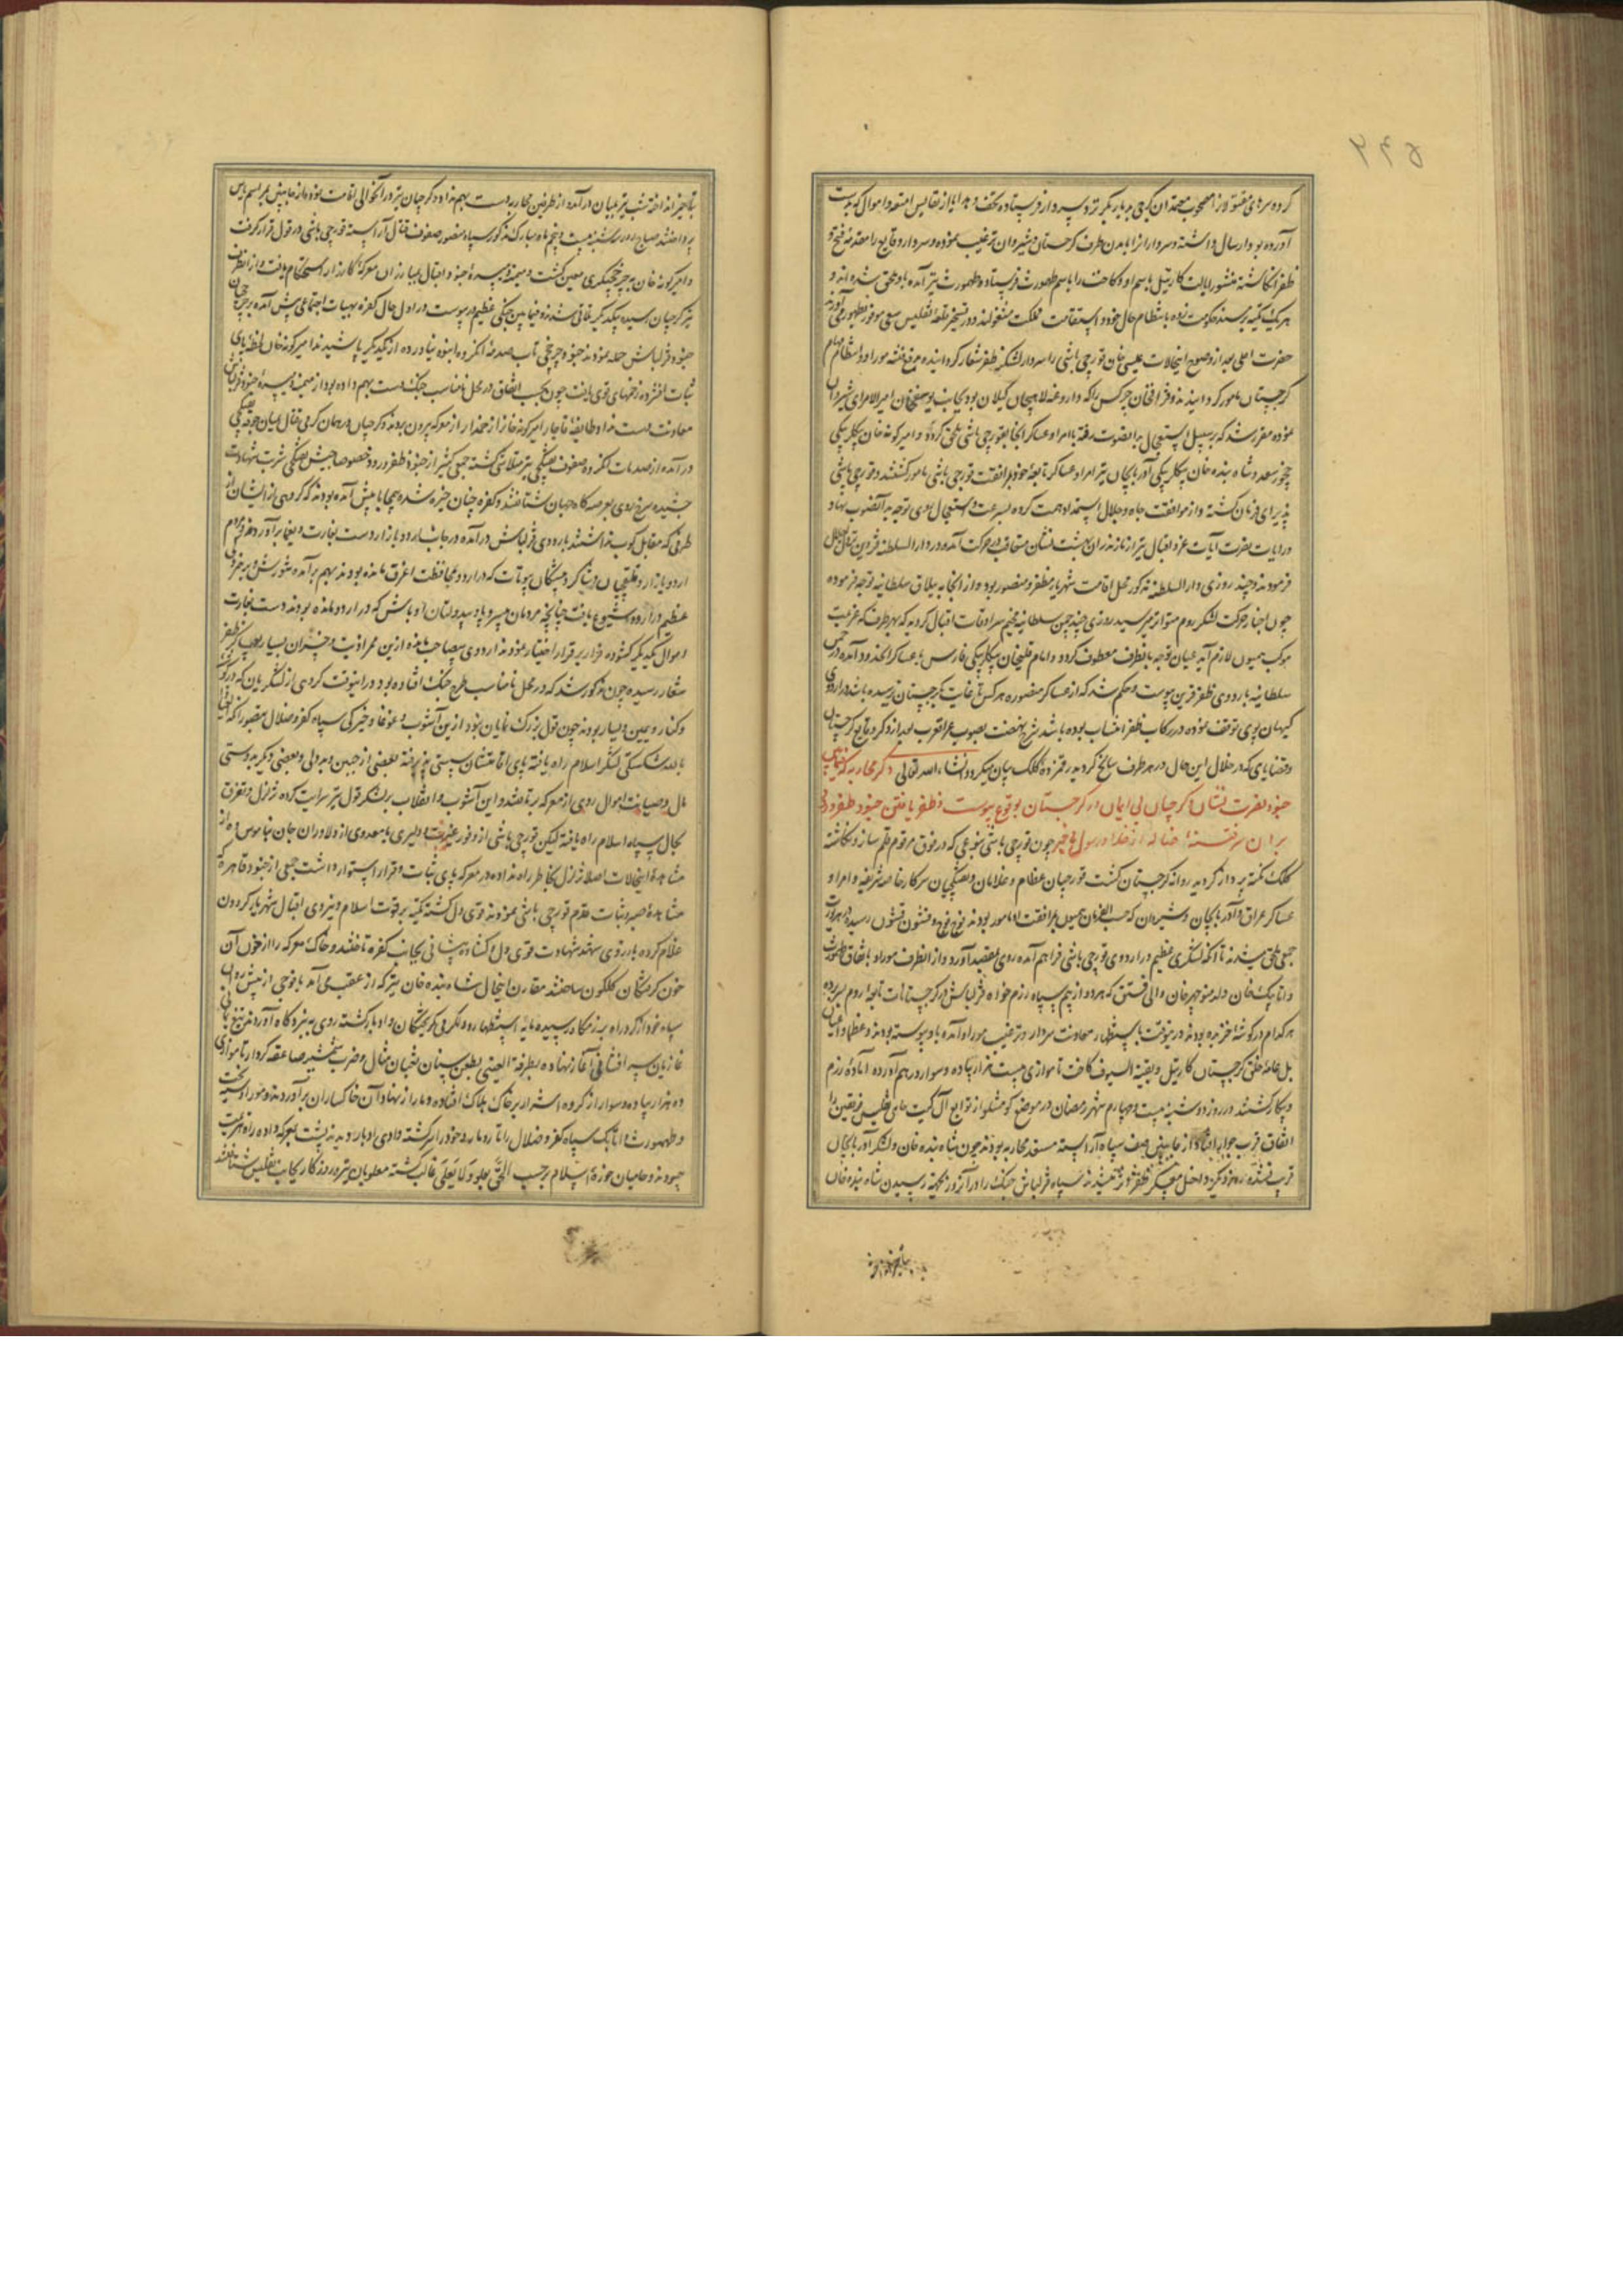 کرده سرهای مقتولانرا مصحوب معتمدان کرجی بدیار بکر نزد سردار فرستاده تحف و هدایا از نفایس امتعه و اموال که بدست
آورده بود ارسال داشته و سردار را بآمدن طرف کرجستان و شیروان ترغیب نموده و سردار وقایع را مقدمهٔ فتح و
ظفر انکاشته منشور ایالت کارتیل باسم او و کاخت را باسم طهمورث فرستاد و طهمورث نیز آمده باو ملحق شد و
هریک تکیه بر مسند حکومت زده بانتظام حال خود و استقامت مملکت مشغولند و در تسخیر قلعهٔ تفلیس سعی موفور بظهور می آورند
حضرت اعلی بعد از وضوح اینحالات عیسی خان قورچی باشی را سردار لشکر ظفر شعار کردانیده بدفع فتنه موراو و انتظام مهام
کرجستان مامور کردانیدند و قزاق خان چرکس را که داروغه لاهیجان کیلان بود بجای یوسفخان امیرالامرای شیروان
نموده مقرر شد که بر سبیل استعجال بدانصوب رفته با امرا و عساکر انجا بقورچی باشی ملحق کردد و امیرکونه خان بیکلربیکی
چخور سعد و شاه بنده خان بیکلربیکی آذربایجان نیز با امرا و عساکر تابعهٔ خود بمرافقت قورچی باشی مامور کشتند و قورچی باشی
پذیرای فرمان کشته و از موافقت جاه و جلال استمداد همت کرده بسرعت و استعجال روی توجه بدانصوب نهاد
و رایات نصرت آیات عز و اقبال نیز از مازندران بهشت نشان متعاقب در حرکت آمده در دارالسلطنه قزوین نزول اجلال
فرمودند و چند روزی دارالسلطنه مذکور محل اقامت شهریار مظفر و منصور بود و از انجا به ییلاق سلطانیه توجه فرموده
چون اخبار حرکت لشکر روم متواتر میرسید روزی چند چمن سلطانیه مخیم سرادقات اقبال کردید که بهر طرف که عزیمت
موکب همیون لازم آید عنان توجه بانطرف معطوف کردد و امام قلیخان بیکلربیکی فارس با عساکر انحدود آمده در چمن
سلطانیه باردوی ظفر قرین پیوست و حکم شد که از عساکر منصوره هر کس تا غایت بکرجستان نرسیده باشد در اردوی
کیهان پوی توقف نموده در رکاب ظفر انتساب بوده باشد شرح نهضت بصوب عراق عرب بعد از ذکر وقایع کرجستان
و قضایای که در خلال این حال در هر طرف سانح کردید رقمزدهٔ کلک بیان میکردد انشاء الله تعالی ذکر محاربه که فیمابین
جنود نصرت نشان و کرجیان بی ایمان در کرجستان بوقوع پیوست و ظفر یافتن جنود ظفر ورود
بران سرفتنهٔ از خدا و رسول بیخبر چون قورچی باشی بنوعی که در فوق مرقوم قلم ساز و نکاشته
کلک نکته پرداز کردید روانه کرجستان کشت قورچیان عظام و غلامان و تفنکچیان سرکار خاصه شریفه و امرا و
عساکر عراق و آذربایجان و شیروان که حسب الفرمان همیون بمرافقت او مامور بودند فوج فوج و قشون قشون رسیده در هر وقت
جمعی ملحق میشدند تا آنکه لشکری عظیم در اردوی قورچی باشی فراهم آمده روی بمقصد آورد و از انطرف موراو باتفاق طهمورث
و اتابک خان ولد منوچهر خان والی قستق که هر دو از بیم سپاه رزم خواه قزلباش در کرجستانات تابعهٔ روم بسر برده
هر کدام در کوشهٔ خزیده بودند در ینوقت باستظهار معاونت سردار و ترغیب موراو آمده باو پیوسته بودند و عظما و اعیان
بل عامهٔ خلق کرجستان کارتیل و بقیة السیوف کاخت تا موازی بیست هزار پیاده و سوار در هم آورده آماده رزم
و پیکار کشتند در روز دوشنبه بیست و چهارم شهر رمضان در موضع کومشلو از توابع
اتفاق قرب جوار افتاد از جانبین صف سپاه آراسته مستعد محاربه بودند چون شاه بنده خان و لشکر آذربایجان
قریب شده روز دیکر داخل معسکر ظفر اثر میشدند سپاه قزلباش جنک را در آنروز بجهة رسیدن شاه بنده خان
بتاخیر انداخته
بتاخیر انداخته شب نیز بمیان درآمده از طرفین محاربه دست بهم نداد و کرجیان نیز در آنحوالی اقامت نموده از جانبین بمراسم پاس
پرداختند صباح روز سه شنبه بیست و پنجم ماه مبارک مذکور سپاه منصور صفوف قتال آراسته قورچی باشی در قول قرار کرفت
و امیرکونه خان به چرخچیکری معین کشت و میمنه و میسرهٔ جنود اقبال بمبارزان معرکهٔ کارزار استحکام یافت و از انطرف
نیز کرجیان رسیده بیکدیکر تلاقی شد و فیمابین جنکی عظیم پیوست در اول حال کفره بهیات اجتماعی پیش آمده بر چرخچیان
جنود قزلباش حمله نمودند جنود چرخچی تاب صدمهٔ آنکروه انبوه نیاورده از یکدیکر پاشیدند امیرکونه خان لحظهٔ پای
ثبات افشرده زخمهای قوی یافت چون بحسب اتفاق در محل نامناسب جنک دست بهم داده بود از میمنه و میسرهٔ جنود قزلباش
معاونت دست نداد و طایفهٔ قاجار امیرکونه خان را زخمدار از معرکه بیرون بردند و کرجیان در همان کرمی قتال بمیان جوقه چیکی
درآمده از صدمات آنکروه صفوف تفنکچی نیز متلاشی کشته جمعی کثیر از جنود ظفر ورود خصوصا جیش تفنکچی شربت شهادت
چشیده سرخ روی بعرصه کاه جهان شتافتند و کفره چنان خیره شده بیمحابا پیش آمده بودند که کروهی از ایشان از
طرفی که مقابل کوب نداشتند باردوی قزلباش درآمده در جانب اردو بازار دست بغارت و یغما برآوردند و مردم
اردو بازار و قلیقچیان و شاکرد پیشکان بیوتات که در اردو بمحافظت اغرق مانده بودند بهم برآمده شورش و بی خبری
عظیم در اردو شیوع یافت چنانچه مردمان بی سر و پا و بیدولتان اوباش که در اردو مانده بودند دست بغارت
و اموال یکدیکر کشوده فرار بر قرار اختیار نمودند اردوی بیصاحب مانده ازین ممر اذیت و خسران بسیار بعساکر ظفر
شعار رسیده چون مذکور شد که در محل نامناسب طرح جنک افتاده بود در اینوقت کروهی از لشکریان که در کوشه
و کنار و یمین و یسار بودند چون قول بزرک نمایان نبود ازین آشوب و غوغا و خیرکی سپاه کفر و ضلال متصور
بالله شکستکی لشکر اسلام راه یافته پای اقامتشان سستی پذیرفته بعضی از جبن و بددلی و بعضی دیکر بدوستی
مال و صیانت اموال روی از معرکه برتافتند و این آشوب و انقلاب بر لشکر قول نیز سرایت کرده تزلزل و تفرق
بحال سپاه اسلام راه یافته لیکن قورچی باشی از وفور غیرت و دلیری با معدودی از دلاوران جان بناموس ده از
مشاهدهٔ اینحالات اصلا تزلزل بخاطر راه نداده در معرکه پای ثبات و قرار استوار داشت جمعی از جنود قاهره که
مشاهدهٔ صبر و ثبات قدم قورچی باشی نمودند قوی دل کشته تکیه بر قوت اسلام و نیروی اقبال شهریار کردون
غلام کرده با رزوی سعادت شهادت قوی دل و کشاده پیشانی بجانب کفره تاختند و خاک معرکه را از خون آن
خون کرفتکان کلکون ساختند مقارن اینحال شاه بنده خان نیز که از عقب می آمد با فوجی از پیش روان
سپاه خود از کرد راه به رزمکاه رسیده مایهٔ استظهار و دلکرمی کریختکان وادبار کشته روی به نبردکاه آوردند تیغ یمانی
غازیان سر افشانی آغاز نهاده بطرفة العینی بطعن سنان ثعبان مثال و ضرب شمشیر صاعقه کردار تا موازی
ده هزار پیاده و سوار از کروه اشرار بر خاک هلاک افتاده دمار از نهاد آن خاکساران برآوردند و موراو سیه بخت
و طهمورث و اتابک سپاه کفر و ضلال را تار و مار و خود را سرکشته وادی ادبار دیدند پشت بمعرکه داده راه هزیمت
پیمودند و حامیان حوزهٔ اسلام برحسب الحق یعلو و لا یعلی غالب کشته مغلوبان تیره روزکار بجانب تفلیس شتافتند